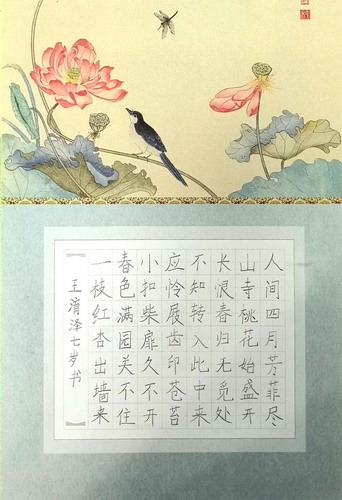 人间四月芳菲尽
山寺桃花始盛开
长恨春归无觅处
不知转入此中来
应怜展齿印苍苔
小扣柴扉久不开
春色满园关不住
一枝红杏出墙来
王淯泽七岁书